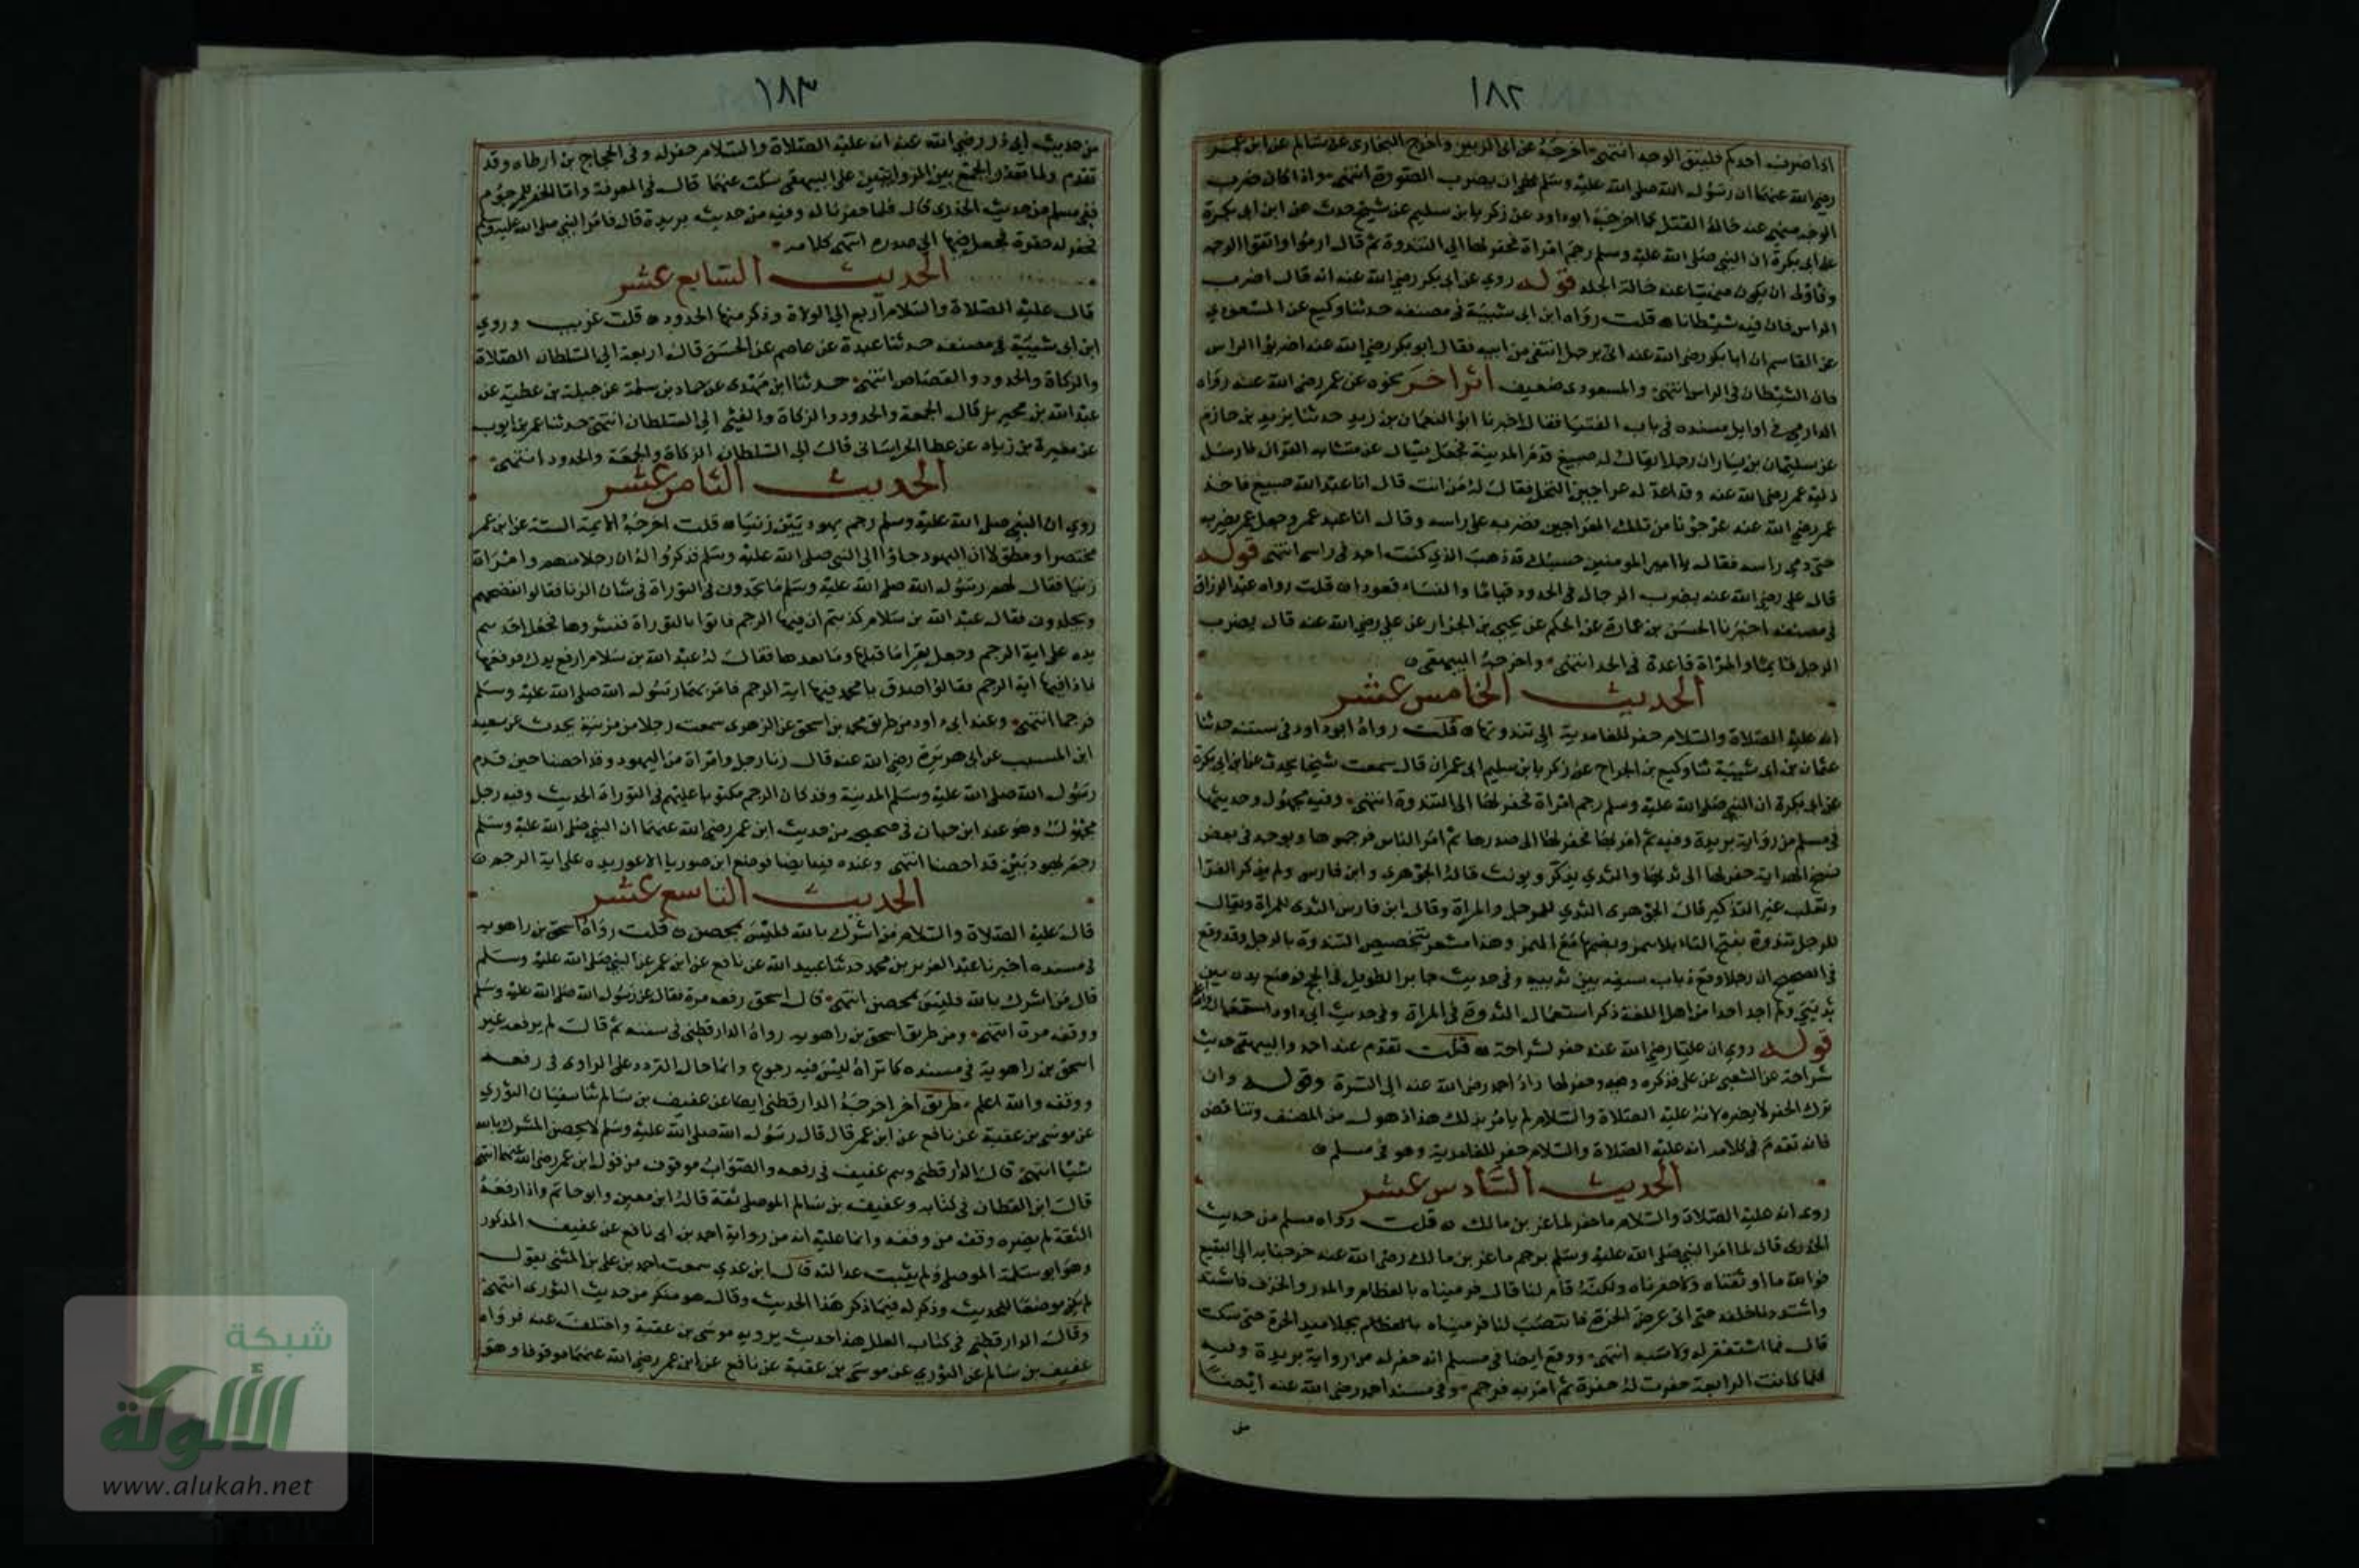 ١٨٢
اذا ضرب احدكم فليتق الوجه انتهى واخرجه عن ابى الزبير واخرج البخارى عن سالم عن ابن عمر
رضي الله عنهما ان رسول الله صلى الله عليه وسلم نهى ان يضرب الصورة انتهى واذا كان ضرب
الوجه منهى عند حالة القتل كما اخرجه ابو داود عن زكريا بن سليم عن شيخ حدث عن ابن ابى بكرة
عن ابى بكرة ان النبي صلى الله عليه وسلم رجم امراة فحفر لها الى الثندوة ثم قال ارموا واتقوا الوجه
ان يكون منهيا عنه حالة الجلد قوله روي عن ابى بكر رضي الله عنه انه قال اضرب
الراس فان فيه شيطانا قلت رواه ابن ابى شيبة في مصنفه حدثنا وكيع عن المسعودي
عن القاسم ان ابا بكر رضي الله عنه اتى برجل انتفى من ابيه فقال ابو بكر رضي الله عنه اضربوا الراس
فان الشيطان فى الراس انتهى والمسعودى ضعيف اثر اخر نحوه عن عمر رضي الله عنه رواه
الدارمي في اوايل مسنده فى باب الفتيا فقال اخبرنا ابو النعمان بن زيد حدثنا يزيد بن حازم
عن سليمان بن يسار ان رجلا يقال له صبيغ قدم المدينة فجعل يسال عن متشابه القران فارسل
اليه عمر رضي الله عنه وقد اعد له عراجين النخل فقال له من انت قال انا عبد الله صبيغ فاخذ
عمر رضي الله عنه عرجونا من تلك العراجين فضربه على راسه وقال انا عبد عمر وجعل عمر يضربه
حتى دمي راسه فقال يا امير المومنين حسبك قد ذهب الذي كنت اجد فى راسى انتهى قوله
قال علي رضي الله عنه يضرب الرجال فى الحدود قياما والنساء قعودا قلت رواه عبد الرزاق
فى مصنفه اخبرنا الحسن بن عمارة عن الحكم عن يحيى بن الجزار عن علي رضي الله عنه قال يضرب
الرجل قايما والمراة قاعدة فى الحد انتهى واخرجه البيهقى
الحديث الخامس عشر
انه عليه الصلاة والسلام حفر للغامدية الى ثندوتها قلت رواه ابو داود فى سننه حدثنا
عثمان بن ابى شيبة ثنا وكيع بن الجراح عن زكريا بن سليم ابى عمران قال سمعت شيخا يحدث عن ابن ابى بكرة
عن ابى بكرة ان النبي صلى الله عليه وسلم رجم امراة فحفر لها الى الثندوة انتهى وفيه مجهول وحديثها
فى مسلم من رواية بريدة وفيه ثم امر بها فحفر لها الى صدرها ثم امر الناس فرجموها ويوجد فى بعض
نسخ الهداية حفر لها الى ثديها والثدي يذكر ويونث قاله الجوهرى وابن فارس ولم يذكر الفرا
وثعلب غير التذكير قال الجوهرى الثدي للرجل والمراة وقال ابن فارس الثدى للمراة ويقال
للرجل ثندوة بفتح الثاء بلا همز وبضمها مع الهمز وهذا مشعر بتخصيص الثندوة بالرجل وقد وقع
فى الصحيح ان رجلا وضع ذباب سيفه بين ثدييه وفى حديث جابر الطويل فى الحج فوضع يده بين
ثديي ولم اجد احدا من اهل اللغة ذكر استعمال الثندوة فى المراة وفى حديث ابى داود استعمال
قوله روي ان عليا رضي الله عنه حفر لشراحة قلت تقدم عند احمد والبيهقى حديث
شراحة عن الشعبى عن على فذكره وفيه وحفر لها زاد احمد رضي الله عنه الى السرة وقوله وان
ترك الحفر لا يضره لانه عليه الصلاة والسلام لم يامر بذلك هذا ذهول من المصنف وتناقض
فانه تقدم فى كلامه انه عليه الصلاة والسلام حفر للغامدية وهو فى مسلم
الحديث السادس عشر
روى انه عليه الصلاة والسلام ما حفر لماعز بن مالك قلت رواه مسلم من حديث
الخدرى قال لما امر النبي صلى الله عليه وسلم برجم ماعز بن مالك رضي الله عنه خرجنا به الى البقيع
فوالله ما اوثقناه ولا حفرناه ولكنه قام لنا قال فرميناه بالعظام والمدر والخزف فاشتد
واشتددنا خلفه حتى اتى عرض الحرة فانتصب لنا فرميناه بجلاميد الحرة حتى سكت
قال فما استغفر له ولا سبه انتهى ووقع ايضا فى مسلم انه حفر له من رواية بريدة وفيه
فلما كانت الرابعة حفرت له حفرة ثم امر به فرجم وفى مسند احمد رضي الله عنه ايضا
من
١٨٣
من حديث ابى ذر رضي الله عنه انه عليه الصلاة والسلام حفر له وفى الحجاج بن ارطاه وقد
تقدم ولما تعذر الجمع بين الروايتين على البيهقى سكت عنهما قال فى المعرفة واما الحفر للمرجوم
ففى مسلم من حديث الخدرى قال فما حفرنا له وفيه من حديث بريدة قال فامر النبي صلى الله عليه وسلم
فحفر له حفرة فجعل فيها الى صدره انتهى كلامه
الحديث السابع عشر
قال عليه الصلاة والسلام اربع الى الولاة وذكر منها الحدود قلت غريب وروي
ابن ابى شيبة فى مصنفه حدثنا عبدة عن عاصم عن الحسن قال اربعة الى السلطان الصلاة
والزكاة والحدود والقصاص انتهى حدثنا ابن مهدى عن حماد بن سلمة عن جبلة بن عطية عن
عبد الله بن محيريز قال الجمعة والحدود والزكاة والفيئ الى السلطان انتهى حدثنا عمر بن ايوب
عن مغيرة بن زياد عن عطا الخراسانى قال الى السلطان الزكاة والجمعة والحدود انتهى
الحديث الثامن عشر
روي ان النبي صلى الله عليه وسلم رجم يهوديين زنيا قلت اخرجه الايمة الستة عن ابن عمر
مختصرا ومطولا ان اليهود جاؤا الى النبي صلى الله عليه وسلم فذكروا له ان رجلا منهم وامراة
زنيا فقال لهم رسول الله صلى الله عليه وسلم ما تجدون فى التوراة فى شان الزنا فقالوا نفضحهم
ويجلدون فقال عبد الله بن سلام كذبتم ان فيها الرجم فاتوا بالتوراة فنشروها فجعل احدهم
يده على اية الرجم وجعل يقرا ما قبلها وما بعدها فقال له عبد الله بن سلام ارفع يدك فرفعها
فاذا فيها اية الرجم فقالوا صدق يا محمد فيها اية الرجم فامر بهما رسول الله صلى الله عليه وسلم
فرجما انتهى وعند ابى داود من طريق محمد بن اسحق عن الزهرى سمعت رجلا من مزينة يحدث عن سعيد
ابن المسيب عن ابى هريرة رضي الله عنه قال زنا رجل وامراة من اليهود وقد احصنا حين قدم
رسول الله صلى الله عليه وسلم المدينة وقد كان الرجم مكتوبا عليهم فى التوراة الحديث وفيه رجل
مجهول وهو عند ابن حبان فى صحيحه من حديث ابن عمر رضي الله عنهما ان النبي صلى الله عليه وسلم
رجم يهوديين قد احصنا انتهى وعنده فيه ايضا فوضع ابن صوريا الاعور يده على اية الرجم
الحديث التاسع عشر
قال عليه الصلاة والسلام من اشرك بالله فليس بمحصن قلت رواه اسحق بن راهويه
فى مسنده اخبرنا عبد العزيز بن محمد حدثنا عبيد الله عن نافع عن ابن عمر عن النبي صلى الله عليه وسلم
قال من اشرك بالله فليس بمحصن انتهى قال اسحق رفعه مرة فقال عن رسول الله صلى الله عليه وسلم
ووقفه مرة انتهى ومن طريق اسحق بن راهويه رواه الدارقطنى فى سننه ثم قال لم يرفعه غير
اسحق بن راهوية فى مسنده كما تراه ليس فيه رجوع وانما حال التردد على الراوى فى رفعه
ووقفه والله اعلم طريق اخر اخرجه الدارقطنى ايضا عن عفيف بن سالم ثنا سفيان الثوري
عن موسى بن عقبة عن نافع عن ابن عمر قال قال رسول الله صلى الله عليه وسلم لا يحصن المشرك بالله
شيا انتهى قال الدارقطنى وهم عفيف فى رفعه والصواب موقوف من قول ابن عمر رضي الله عنهما انتهى
قال ابن القطان فى كتابه وعفيف بن سالم الموصلى ثقة قاله ابن معين وابو حاتم واذا رفعه
الثقة لم يضره وقف من وقفه وانما علته انه من رواية احمد بن ابى نافع عن عفيف المذكور
وهو ابو سلمة الموصلى ولم يثبت عدالته قال ابن عدي سمعت احمد بن على بن المثنى يقول
لم يكن موضعا للحديث وذكر له فيما ذكر هذا الحديث وقال هو منكر من حديث الثورى انتهى
وقال الدارقطنى فى كتاب العلل هذا حديث يرويه موسى بن عقبة واختلف عنه فرواه
عفيف بن سالم عن الثوري عن موسى بن عقبة عن نافع عن ابن عمر رضي الله عنهما موقوفا وهو
شبكة
الألوكة
www.alukah.net